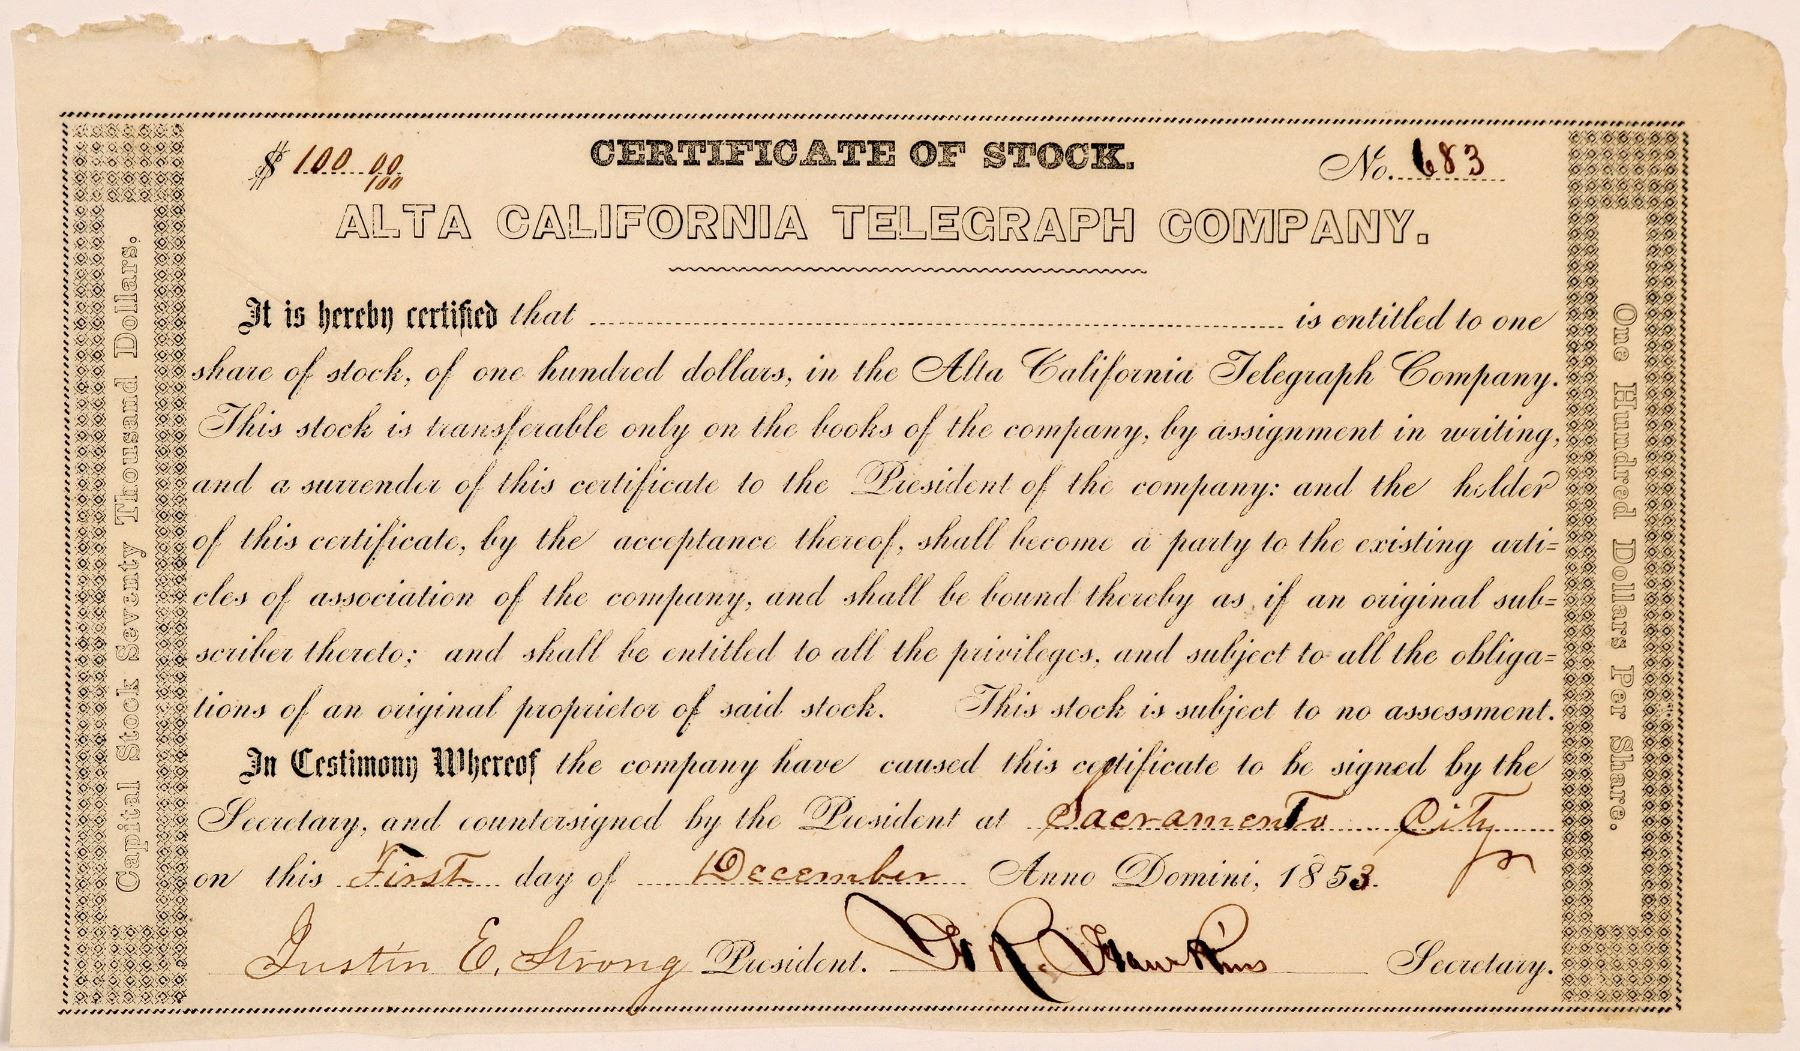 $ 100 00/100
CERTIFICATE OF STOCK.
No. 683
ALTA CALIFORNIA TELEGRAPH COMPANY.
Capital Stock Seventy Thousand Dollars.
It is hereby certified that is entitled to one
share of stock, of one hundred dollars, in the Alta California Telegraph Company.
This stock is transferable only on the books of the company, by assignment in writing,
and a surrender of this certificate to the President of the company: and the holder
of this certificate, by the acceptance thereof, shall become a party to the existing arti=
cles of association of the company, and shall be bound thereby as if an original sub=
scriber thereto; and shall be entitled to all the privileges, and subject to all the obliga=
tions of an original proprietor of said stock. This stock is subject to no assessment.
In Testimony Whereof the company have caused this certificate to be signed by the
Secretary, and countersigned by the President at Sacramento City
on this First day of December Anno Domini, 1853.
Justin E. Strong President. Hawkins Secretary.
One Hundred Dollars Per Share.